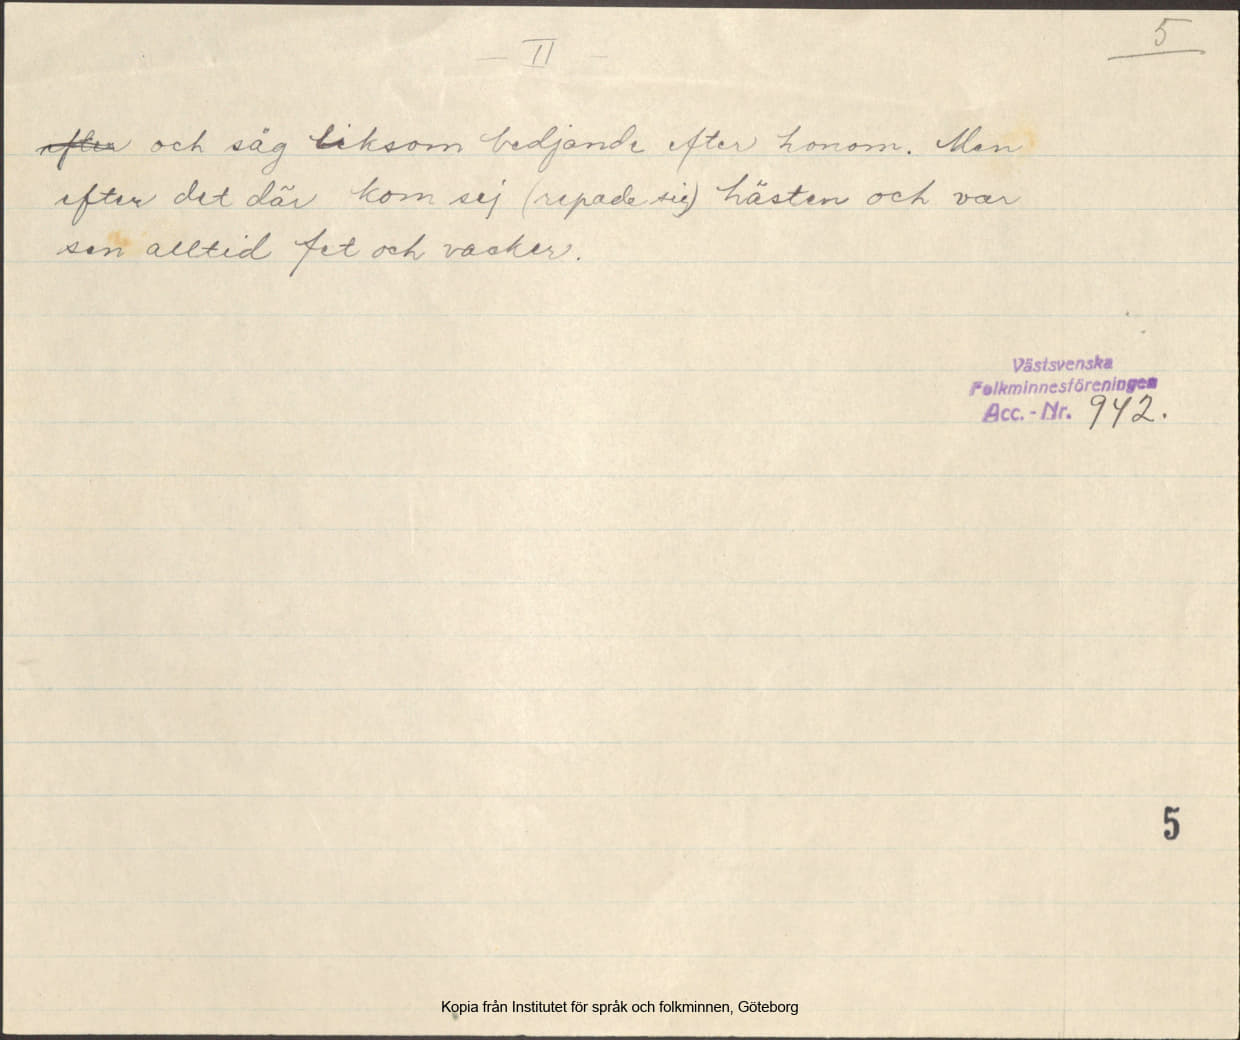 5
— II —
efter och säg liksom bedjande efter honom. Men
efter det där kom sej (repade sig) hästen och var
sen alltid fet och vacker.
Västsvenska
Folkminnesföreningen
Acc. - Nr. 942.
5
Kopia från Institutet för språk och folkminnen, Göteborg